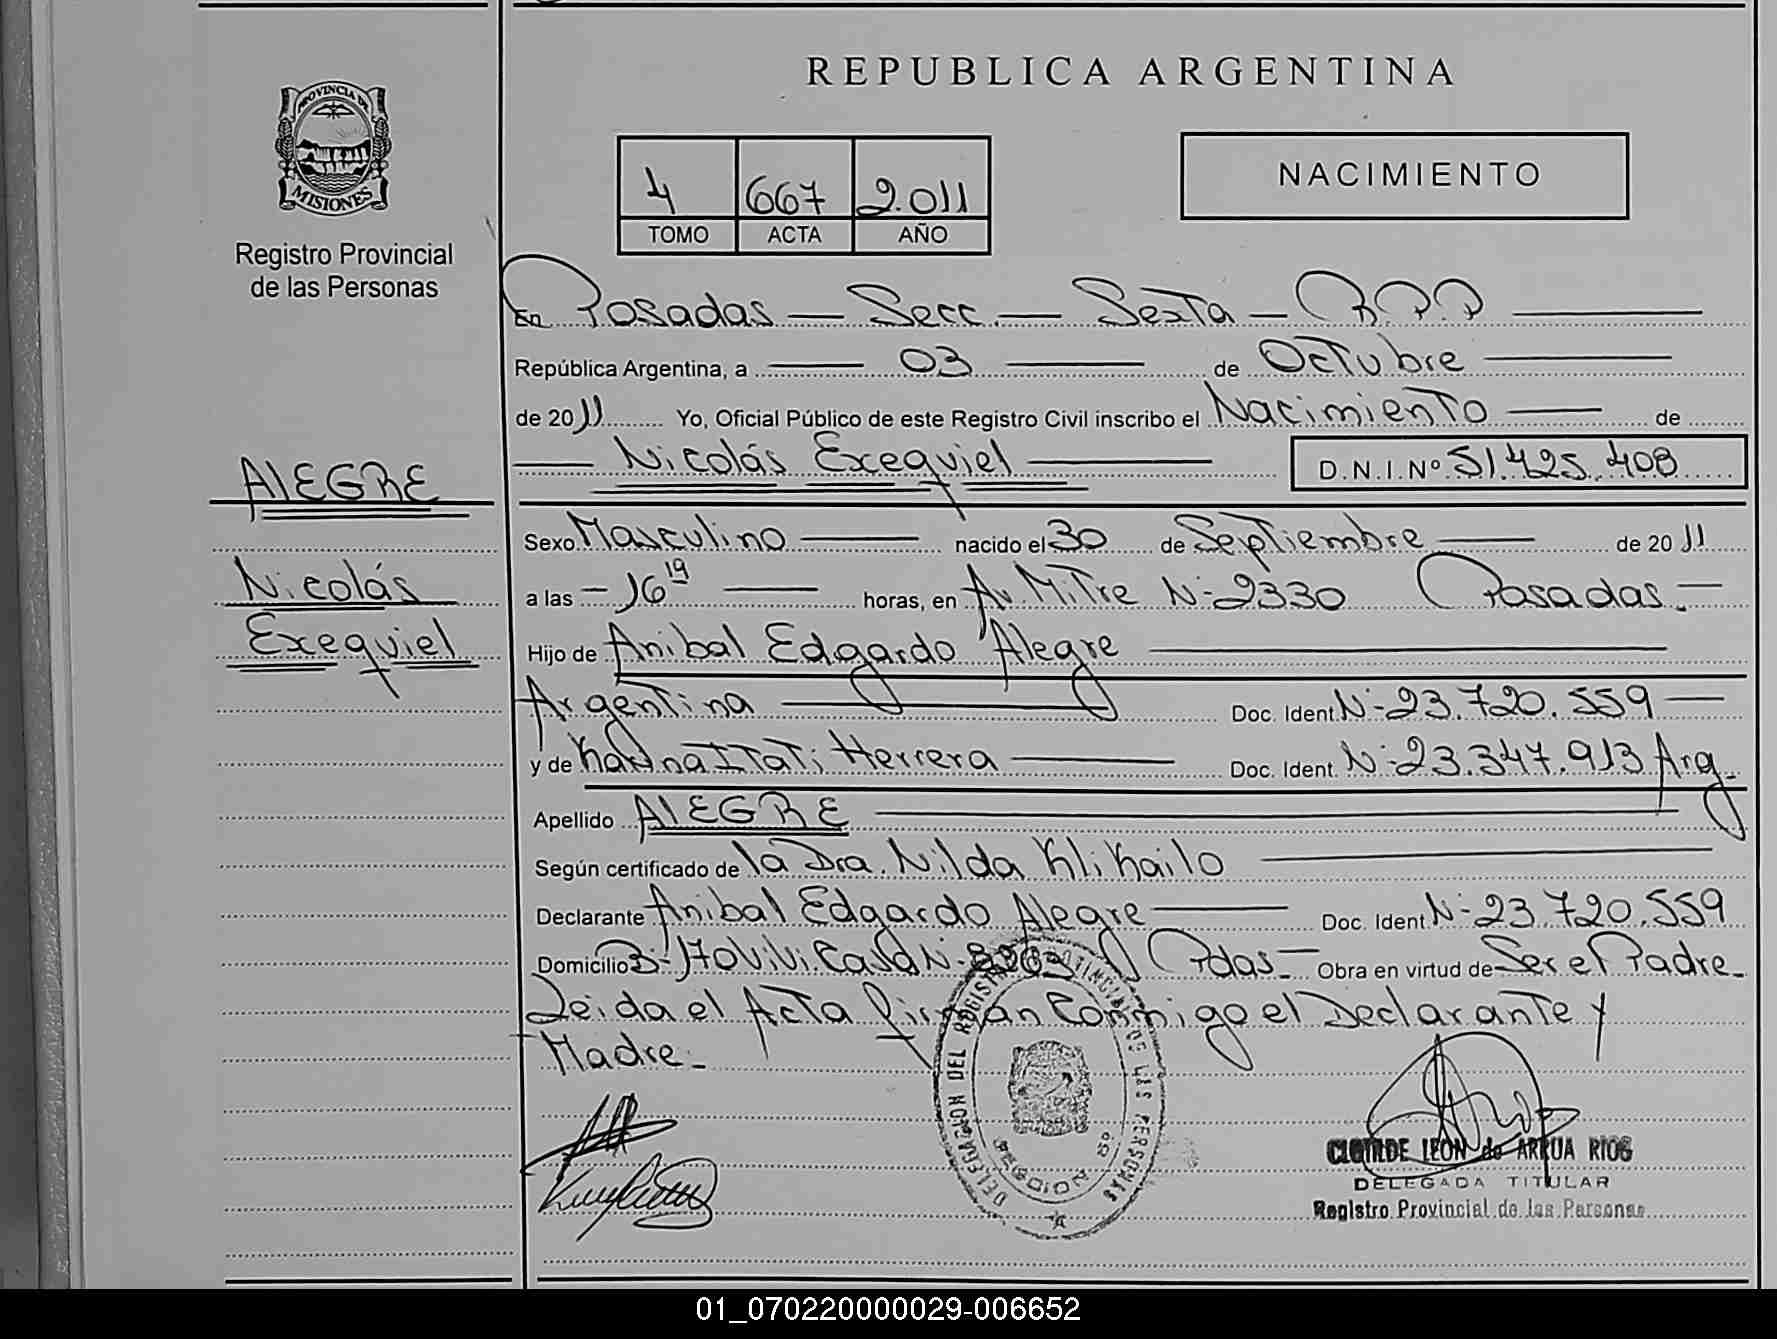 PROVINCIA DE
MISIONES
Registro Provincial
de las Personas
ALEGRE
Nicolás
Exequiel
REPUBLICA ARGENTINA
4 667 2.011
TOMO ACTA AÑO
NACIMIENTO
En Posadas — Secc. — Sexta — R.P.P
República Argentina, a — 03 — de Octubre
de 2011 Yo, Oficial Público de este Registro Civil inscribo el Nacimiento — de
Nicolás Exequiel — D.N.I.Nº 51.425.408
Sexo Masculino — nacido el 30 de Septiembre — de 2011
a las — 16 19 — horas, en Av. Mitre N- 2330 Posadas.-
Hijo de Anibal Edgardo Alegre
Argentina — Doc. Ident. N- 23.720.559 —
y de Karina Itati Herrera — Doc. Ident. N- 23.347.913 Arg.
Apellido ALEGRE
Según certificado de la Dra. Nilda Klikailo
Declarante Anibal Edgardo Alegre — Doc. Ident. N- 23.720.559
Domicilio B- 170 Viv. Casa N- Pdas.- Obra en virtud de Ser el Padre-
Leida el Acta firman Conmigo el Declarante y
Madre.-
DELEGACION DEL REGISTRO PROVINCIAL DE LAS PERSONAS
POSADAS
CLOTILDE LEON de ARRUA RIOS
DELEGADA TITULAR
Registro Provincial de las Personas
01_070220000029-006652